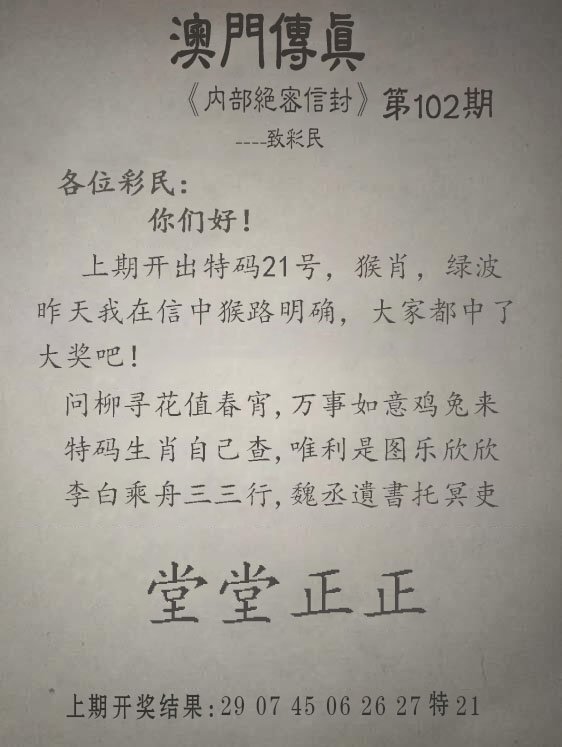 澳門傳眞
《内部絕密信封》第102期
----致彩民
各位彩民：
你们好！
上期开出特码21号，猴肖，绿波
昨天我在信中猴路明确，大家都中了
大奖吧！
问柳寻花值春宵,万事如意鸡兔来
特码生肖自己查,唯利是图乐欣欣
李白乘舟三三行,魏丞遺書托冥吏
堂堂正正
上期开奖结果:29 07 45 06 26 27特21